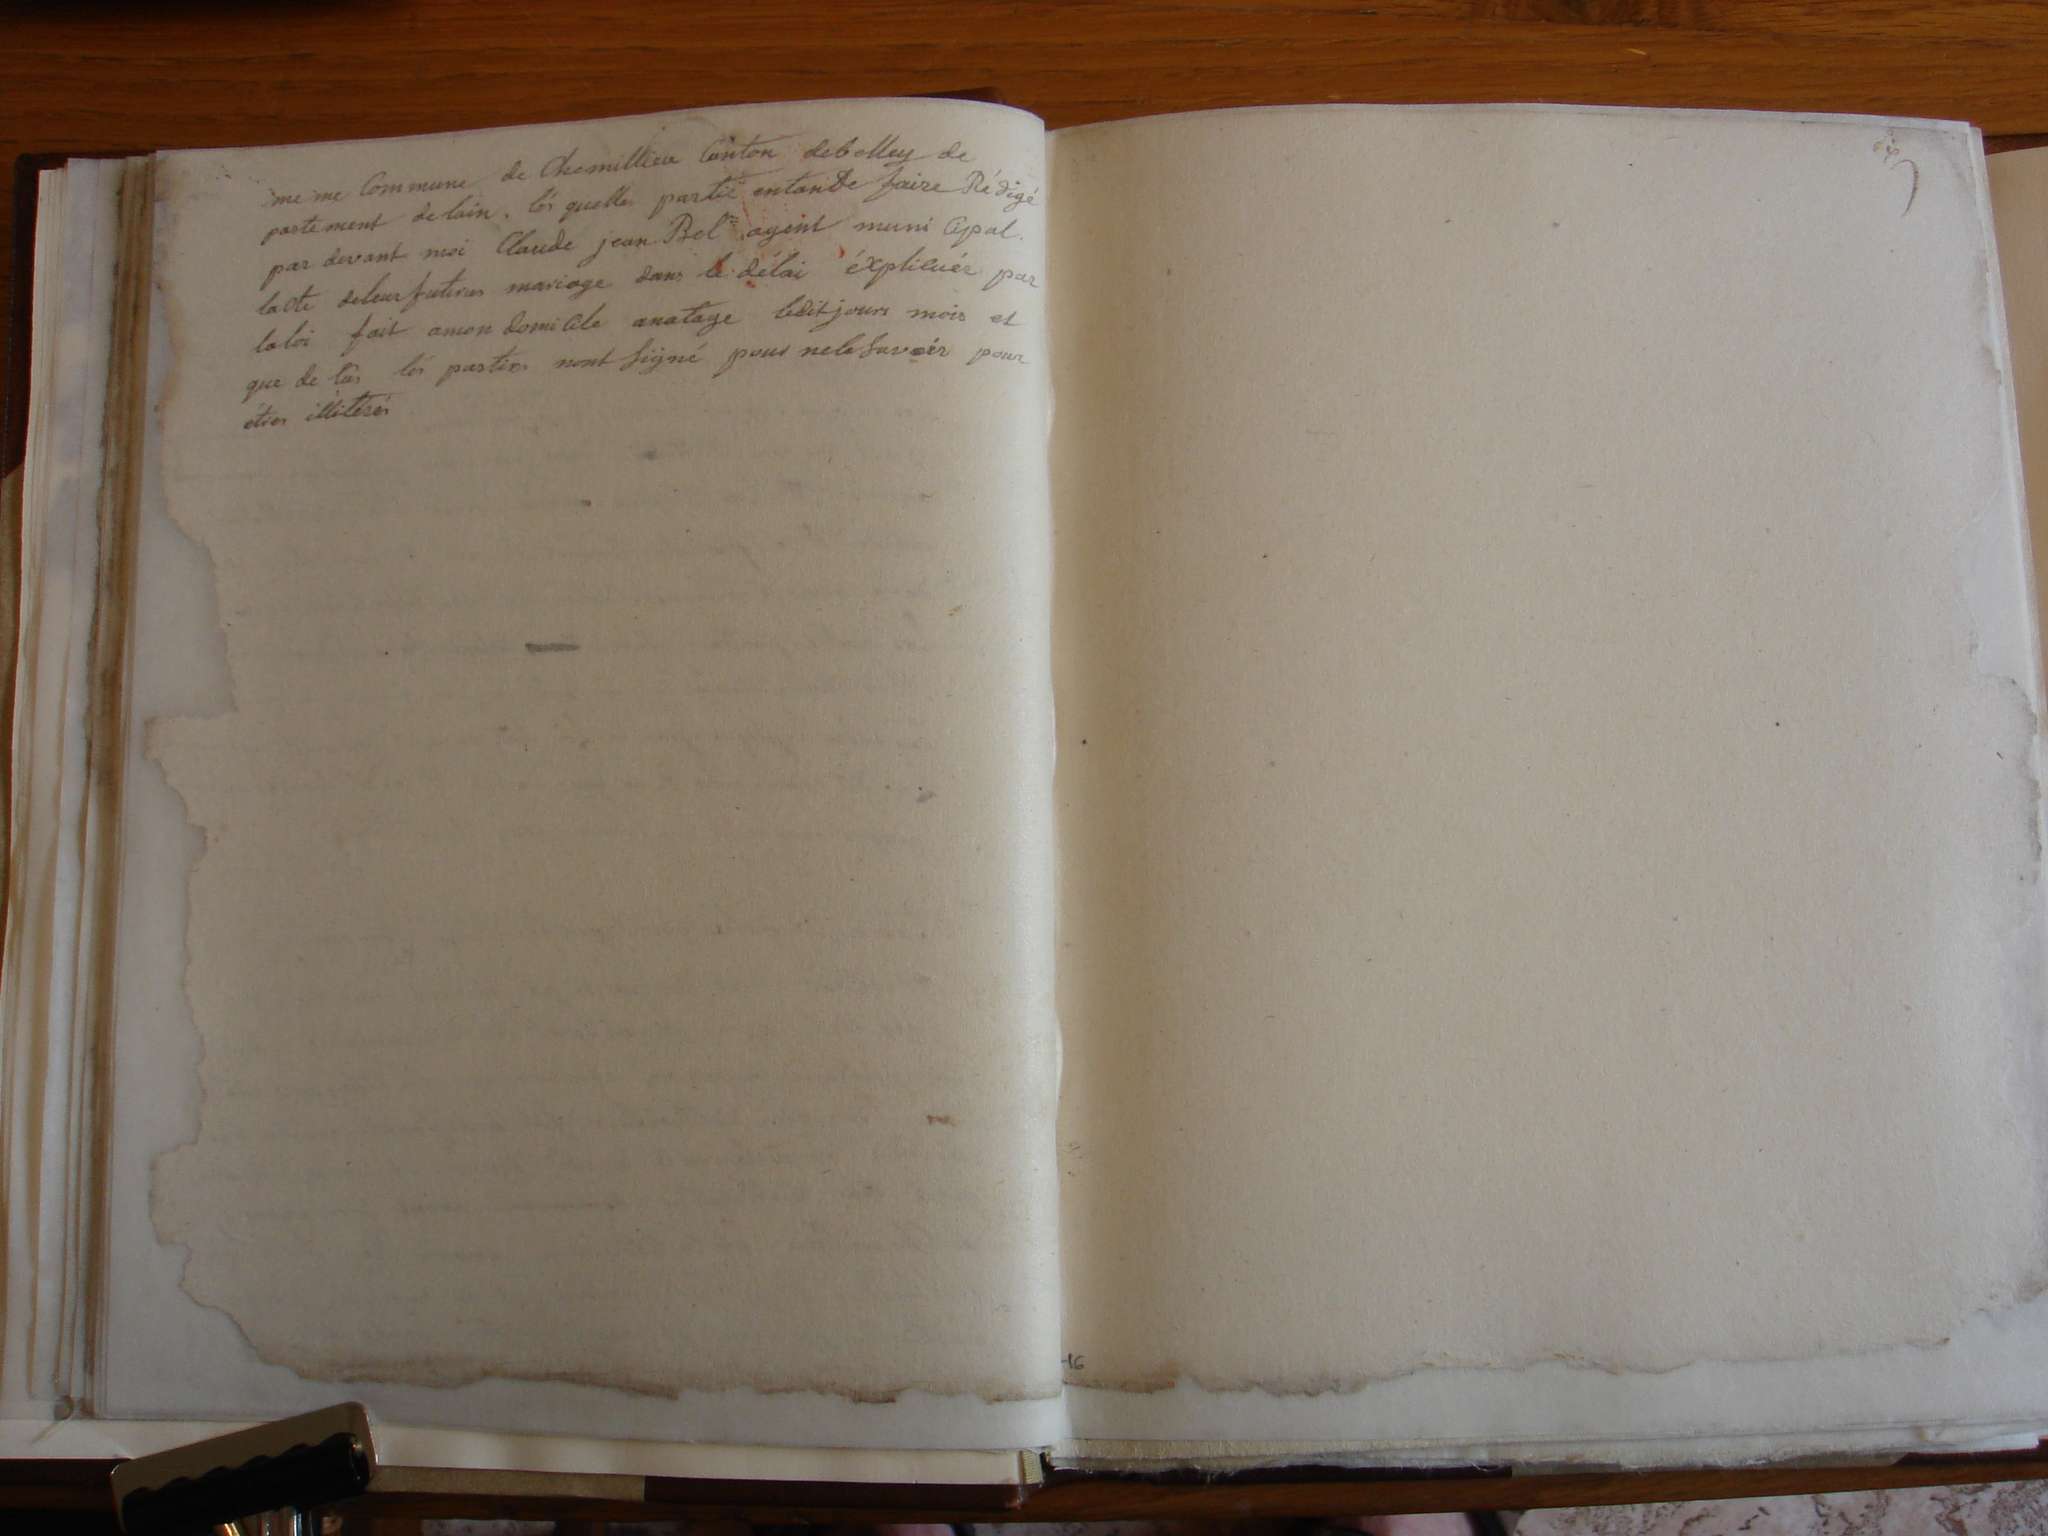 me me Commune de Chemillieu Canton debelley de
partement delain. les quelle partie entande faire Rédigé
par devant moi Claude jean Bel agent muni Cipal.
lacte deleur futures mariage dans le délai éxpliluér par
laloi fait amon domi Cile anatage ledit jours mois et
que de lus les parties nont Signé pour nele Savoér pour
étres illitérés
16